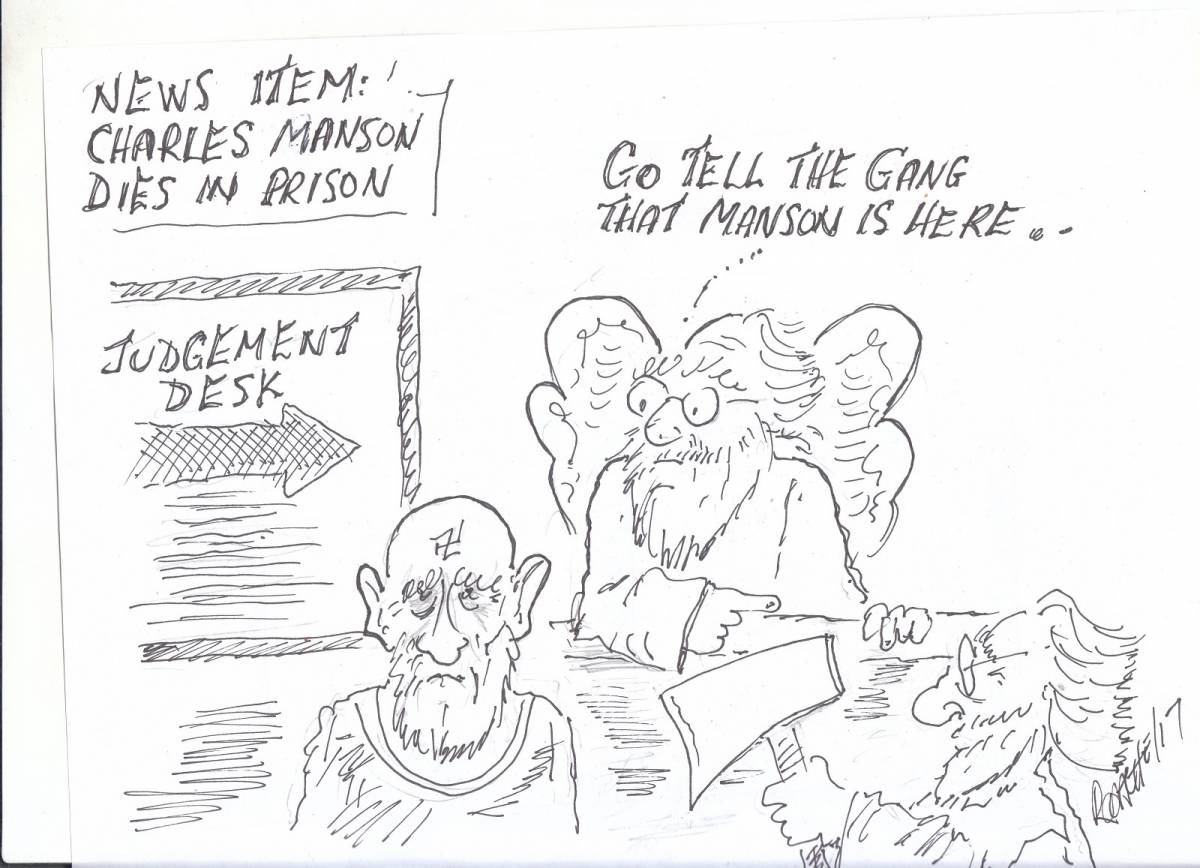 NEWS ITEM:
CHARLES MANSON
DIES IN PRISON
GO TELL THE GANG
THAT MANSON IS HERE...
JUDGEMENT
DESK